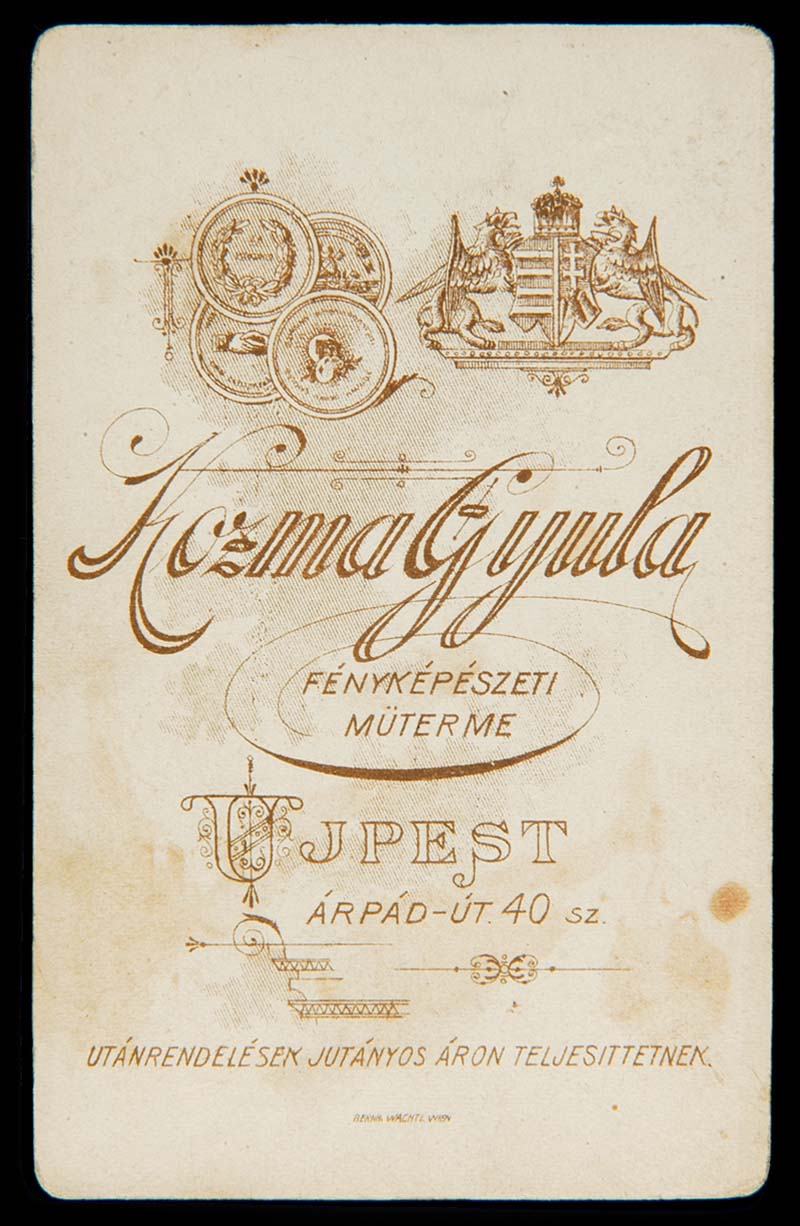 Kozma Gyula
FÉNYKÉPÉSZETI
MŰTERME
UJPEST
ÁRPÁD-ÚT. 40 SZ.
UTÁNRENDELÉSEK JUTÁNYOS ÁRON TELJESITTETNEK.
BERNH. WACHTL WIEN